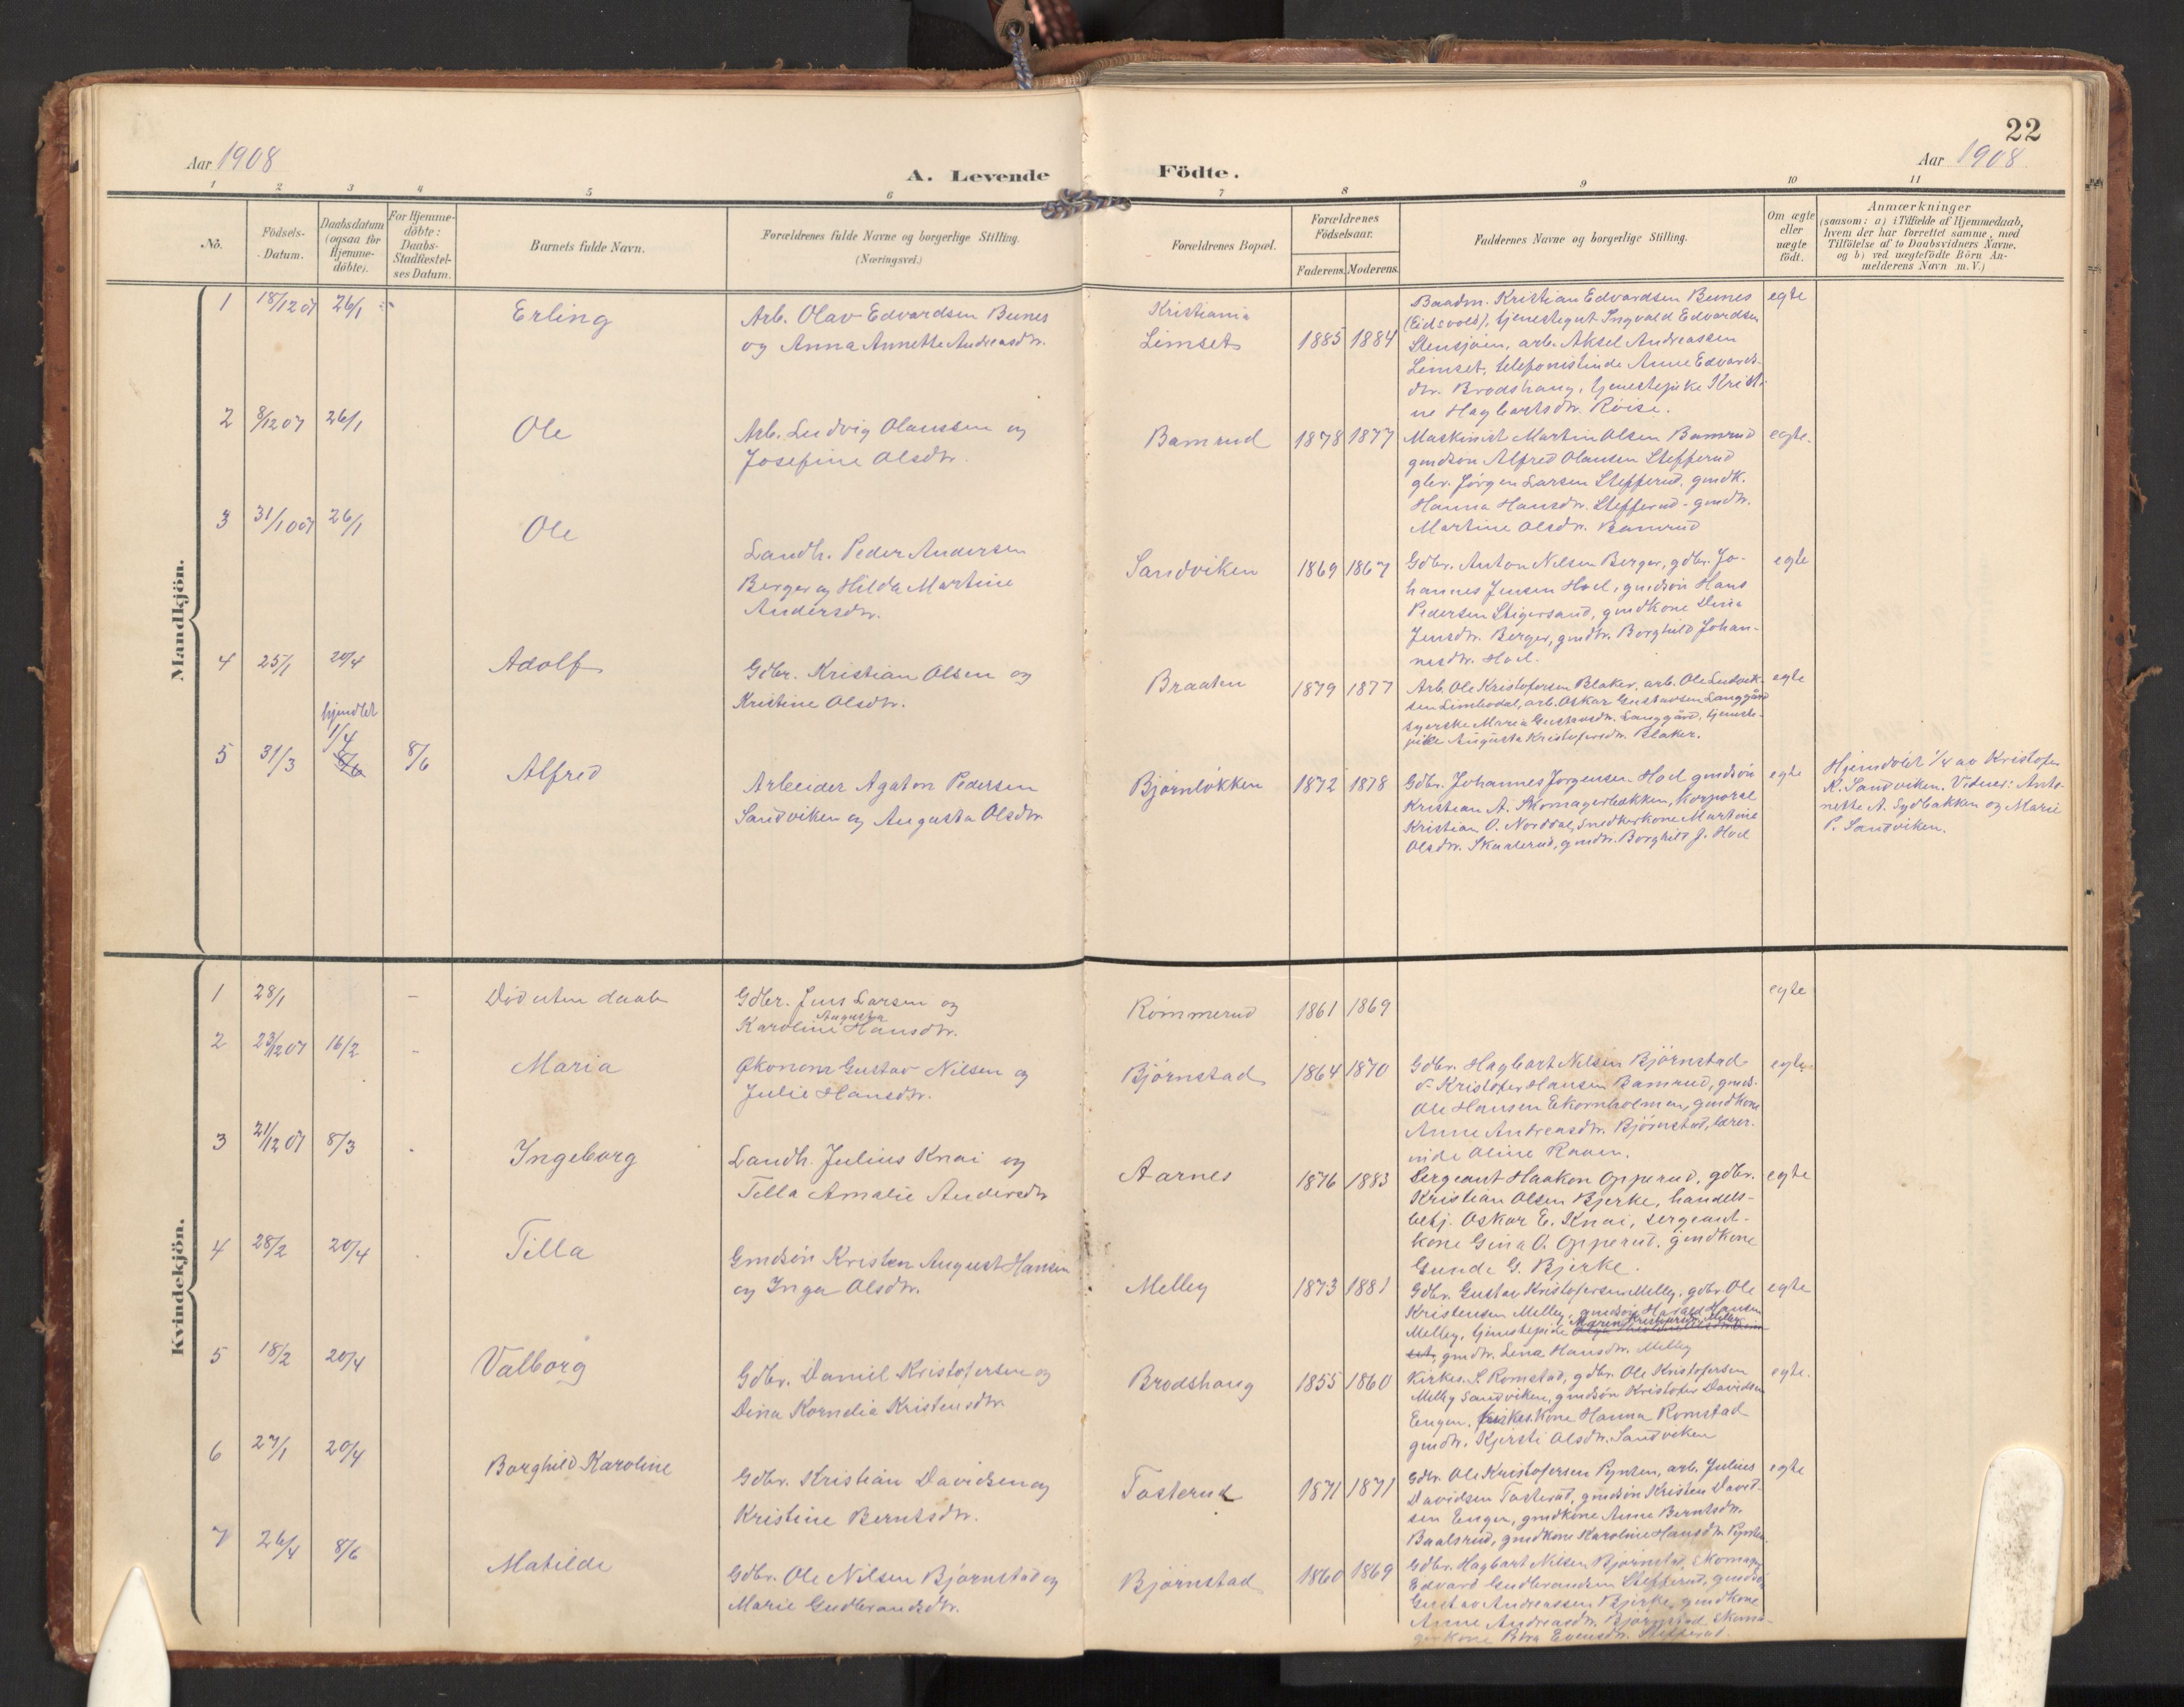 22
Aar 1908
A. Levende Födte.
Aar 1908
1 2 3 4 5 6 7 8 9 10 11
Nö.
Födsels-
Datum.
Daabsdatum
(ogsaa for
Hjemme-
döbte).
For Hjemme-
döbte:
Daabs-
Stadfæstel-
ses Datum.
Barnets fulde Navn.
Forældrenes fulde Navne og borgerlige Stilling.
(Næringsvei.)
Forældrenes Bopæl.
Forældrenes
Födselsaar.
Faderens. Moderens.
Faddernes Navne og borgerlige Stilling.
Om ægte
eller
uægte
födt.
Anmærkninger
(saasom: a) i Tilfælde af Hjemmedaab,
hvem der har forrettet samme, med
Tilföielse af to Daabsvidners Navne,
og b) ved uægtefödte Börn An-
melderens Navn m. V.)
Mandkjön.
1 18/12 07 26/1 Erling
Arb. Olav Edvardsen Bunes
og Anna Annette Andreasdtr.
Kristiania
Limset
1885 1884
Baadm. Kristian Edvardsen Bunes
(Eidsvold), tjenestegut Ingvald Edvardsen
Stensjøen, arb. Aksel Andreassen
Limset, telefonistinde Anne Edvards-
dtr. Brodshaug, tjenestepike Kristi-
ne Hagbartsdtr. Röise.
egte
2 8/12 07 26/1 Ole
Arb. Ludvig Olaussen og
Josefine Olsdtr.
Bamrud
1878 1877
Maskinist Martin Olsen Bamrud
gmdsön Alfred Olausen Stefferud
gbr. Jörgen Larsen Stefferud, gmdk.
Hanna Hansdtr. Stefferud - gmdtr.
Martine Olsdtr. Bamrud
egte.
3 31/10 07 26/1 Ole
Landh. Peder Andersen
Berger og Hilda Martine
Andersdtr.
Sandviken
1869 1867
Gdbr. Anton Nilsen Berger, gdbr. Jo-
hannes Jensen Hoel, gmdsön Hans
Pedersen Stigersand, gmdkone Dina
Jensdtr. Berger, gmdtr. Borghild Johan-
nesdtr. Hoel.
egte
4 25/1 20/4 Adolf
Gdbr. Kristian Olsen og
Kristine Olsdtr.
Braaten
1879 1877
Arb. Ole Kristofersen Blaker, arb. Ole Ludvik-
sen Limbodal, arb. Oskar Gustavsen Langgård
syerske Maria Gustavsdtr. Langgård, tjeneste-
pike Augusta Kristofersdtr. Blaker.
egte
hjemdbt
1/4
8/6
5 31/3 8/6 Alfred
Arbeider Agaton Pedersen
Sandviken og Augusta Olsdtr.
Björnlökken
1872 1878
Gdbr. Johannes Jorgensen Hoel gmdsön
Kristian A. Skomagerbakken, korporal
Kristian O. Norddal, snedkerkone Martine
Olsdtr. Skarterud, gmdtr. Borghild J. Hoel
egte
Hjemdöbt 1/4 av Kristofer
K. Sandviken. Vidner: Anto-
nette A. Sydbakken og Marie
P. Sandviken.
Kvindekjön.
1 28/1 - Död uten daab
Gdbr. Jens Larsen og
Augusta
Karoline Hansdtr.
Römmerud
1861 1869
egte
2 23/12 07 16/2 - Maria
Økonom Gustav Nilsen og
Julie Hansdtr.
Björnstad
1864 1870
Gdbr. Hagbart Nilsen Björnstad
d. Kristofer Hansen Bamrud, gmds.
Ole Hansen Ekornholmen, gmdkone
Anne Andreasdtr. Björnstad, lærer-
inde Oline Raaen.
egte
3 21/12 07 8/3 Ingeborg
Landh. Julius Knai og
Tilla Amalie Andersdtr
Aarnes
1876 1883
Sergeant Haakon Opperud, gdbr.
Kristian Olsen Bjerke, handels-
betj. Oskar E. Knai, sergeant-
kone Gina O. Opperud, gmdkone
Gunde G. Bjerke.
egte
4 28/2 20/4 Tilla
Gmdsön Kristen August Hansen
og Inga Olsdtr.
Melby
1873 1881
Gdbr. Gustav Kristofersen Melby, gdbr. Ole
Kristensen Melby, gmdsön Harald Hansen
Maren Kristiansdtr. Melby
Melby, tjenestepike
gmdtr. Lena Hansdtr. Melby
egte
5 18/2 20/4 Valborg
Gdbr. Daniel Kristofersen og
Dina Kornelia Kristensdtr.
Brodshaug
1855 1860
Kirkes. S. Romstad, gdbr. Ole Kristofersen
Melby Sandviken, gmdsön Kristofer Davidsen
Engen, kirkes.kone Hanna Romstad
gmdtr. Kjersti Olsdtr. Sandviken
egte.
6 27/1 20/4 Borghild Karoline
Gdbr. Kristian Davidsen og
Kristine Berntsdtr.
Tosterud
1871 1871
Gdbr. Ole Kristofersen Pynten, arb. Julius
Davidsen Tosterud, gmdsön Kristen David-
sen Engen, gmdkone Anne Berntsdtr.
Baalsrud, gmdkone Karoline Hansdtr. Pynten
egte
7 26/4 8/6 Matilde
Gdbr. Ole Nilsen Björnstad og
Marie Gudbrandsdtr.
Björnstad
1860 1869
Gdbr. Hagbart Nilsen Björnstad, Skomager
Edvard Gudbrandsen Stefferud, gmdsön
Gustav Andreassen Bjerke, gmdkone
Anne Andreasdtr. Björnstad, Skoma-
gerkone Petra Evensdtr. Stefferud.